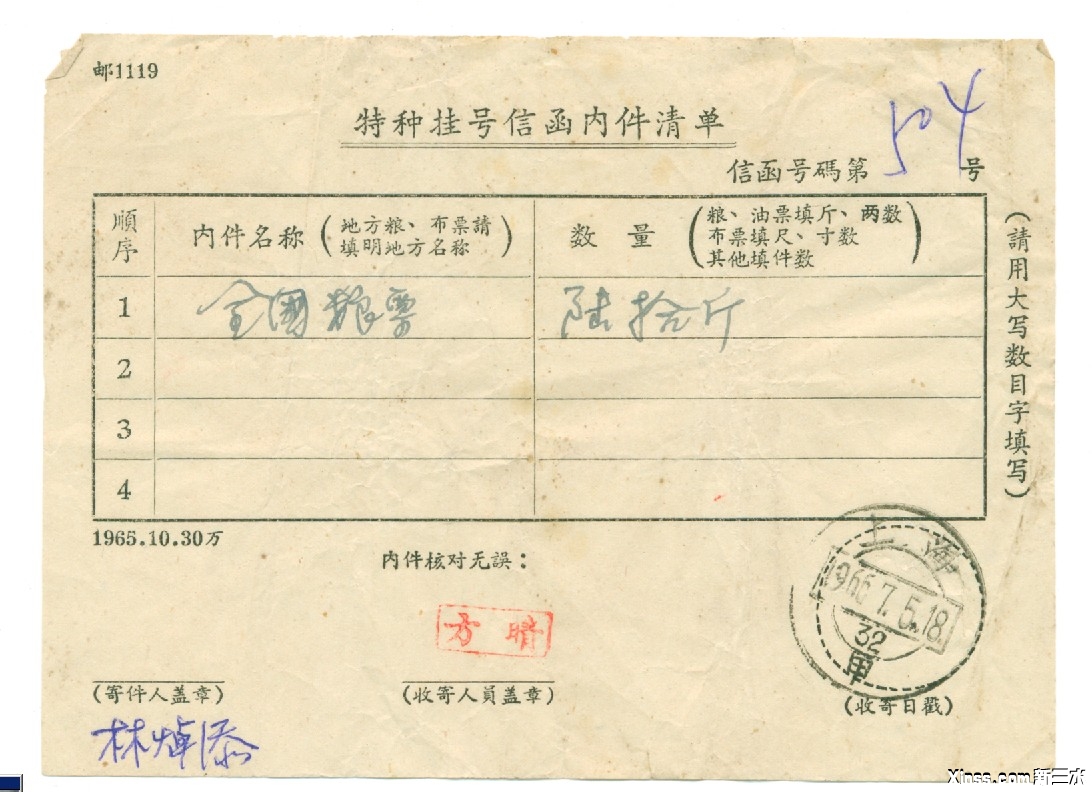 邮1119
特种挂号信函内件清单
信函号碼第504号
順序
内件名称
(地方粮、布票請
填明地方名称)
数量
(粮、油票填斤、两数
布票填尺、寸数
其他填件数)
1 全國粮票 陆拾斤
2
3
4
(請用大写数目字填写)
1965.10.30万
内件核对无誤：
方晴
上海
1966.7.5.18.
32
甲
(寄件人盖章)
(收寄人員盖章)
(收寄日戳)
林焯添
Xinss.com新三水